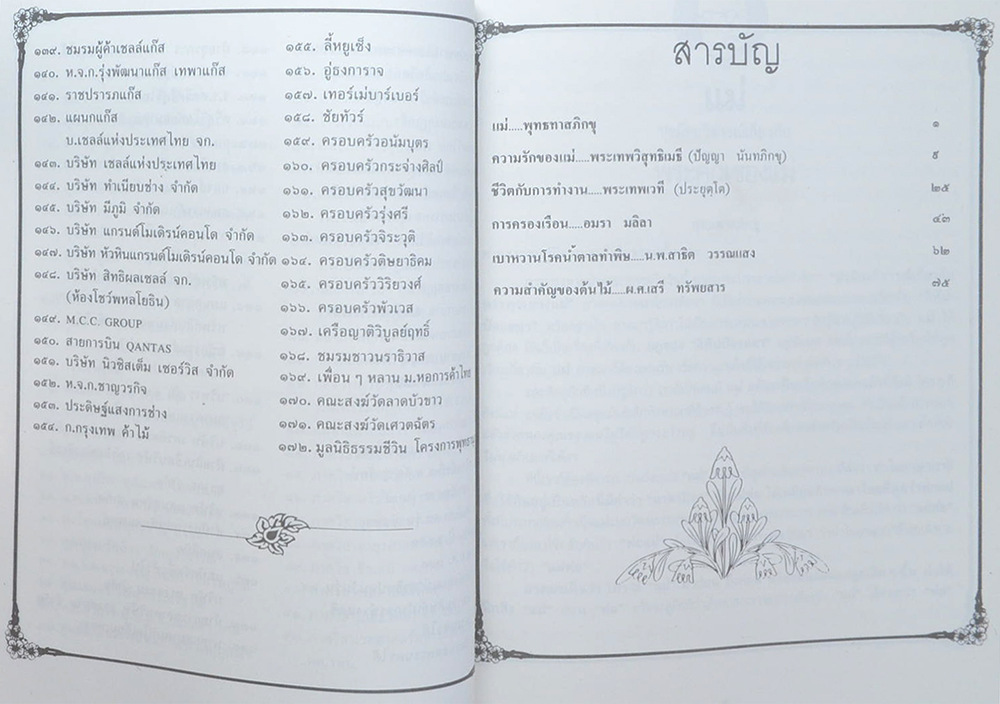 ๑๓๙. ชมรมผู้ค้าเชลล์แก๊ส
๑๔๐. ห.จ.ก.รุ่งพัฒนาแก๊ส เทพาแก๊ส
๑๔๑. ราชปรารภแก๊ส
๑๔๒. แผนกแก๊ส
บ.เชลล์แห่งประเทศไทย จก.
๑๔๓. บริษัท เชลล์แห่งประเทศไทย
๑๔๔. บริษัท ทำเนียบช่าง จำกัด
๑๔๕. บริษัท มีภูมิ จำกัด
๑๔๖. บริษัท แกรนด์โมเดิรน์คอนโด จำกัด
๑๔๗. บริษัท หัวหินแกรนด์โมเดิรน์คอนโด จำกัด
๑๔๘. บริษัท สิทธิผลเซลล์ จก.
(ห้องโชว์พหลโยธิน)
๑๔๙. M.C.C. GROUP
๑๕๐. สายการบิน QANTAS
๑๕๑. บริษัท นิวซิสเต็ม เซอร์วิส จำกัด
๑๕๒. ห.จ.ก.ชาญวรกิจ
๑๕๓. ประดิษฐ์แสงการช่าง
๑๕๔. ก.กรุงเทพ ค้าไม้
๑๕๕. ลี้หยูเซ็ง
๑๕๖. อู่ธงการาจ
๑๕๗. เทอร์เม่บาร์เบอร์
๑๕๘. ชัยทัวร์
๑๕๙. ครอบครัวอนัมบุตร
๑๖๐. ครอบครัวกระจ่างศิลป์
๑๖๑. ครอบครัวสุขวัฒนา
๑๖๒. ครอบครัวรุ่งศรี
๑๖๓. ครอบครัวจิระวุติ
๑๖๔. ครอบครัวดิษยาธิคม
๑๖๕. ครอบครัววิริยวงศ์
๑๖๖. ครอบครัวพัวเวส
๑๖๗. เครือญาติวิบูลย์ฤทธิ์
๑๖๘. ชมรมชาวนราธิวาส
๑๖๙. เพื่อน ๆ หลาน ม.หอการค้าไทย
๑๗๐. คณะสงฆ์วัดลาดบัวขาว
๑๗๑. คณะสงฆ์วัดเศวตฉัตร
๑๗๒. มูลนิธิธรรมชีวิน โครงการพุทธ
สารบัญ
แม่.....พุทธทาสภิกขุ ๑
ความรักของแม่.....พระเทพวิสุทธิเมธี (ปัญญา นันทภิกขุ) ๙
ชีวิตกับการทำงาน.....พระเทพเวที (ประยุตฺโต) ๒๕
การครองเรือน.....อมรา มลิลา ๔๓
เบาหวานโรคน้ำตาลทำพิษ.....น.พ.สาธิต วรรณแสง ๖๒
ความสำคัญของต้นไม้.....ผ.ศ.เสรี ทรัพยสาร ๗๕